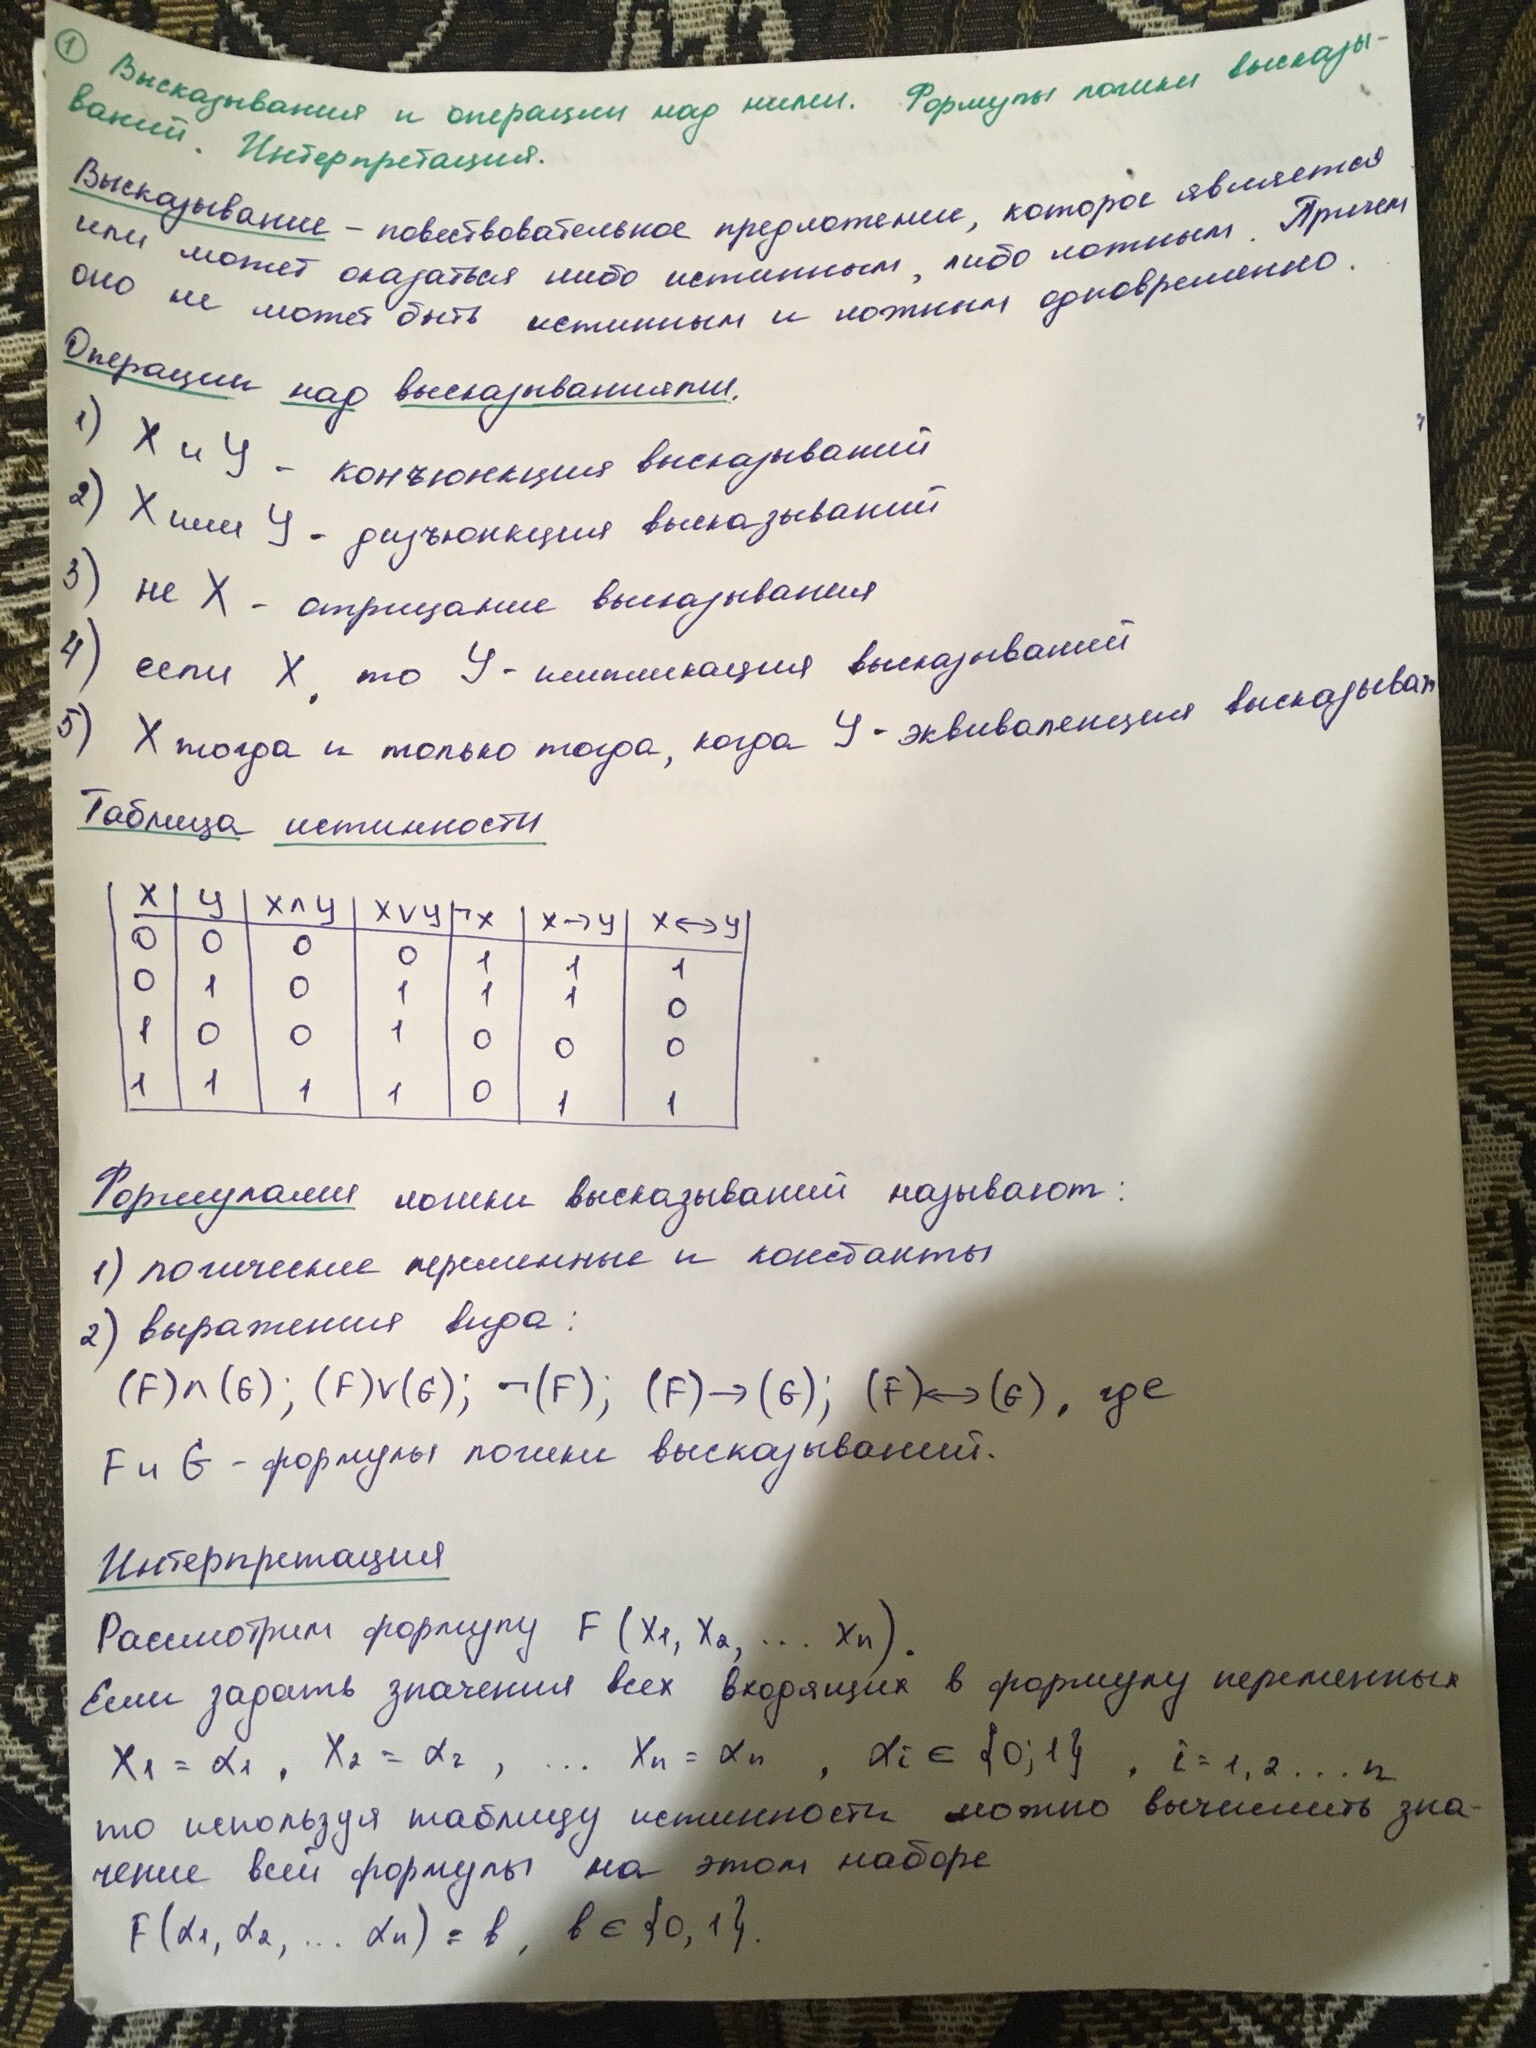 ① Высказывания и операции над ними. Формулы логики высказы-
ваний. Интерпретация.
Высказывание – повествовательное предложение, которое является
или может оказаться либо истинным, либо ложным. Причем
оно не может быть истинным и ложным одновременно.
Операции над высказываниями.
1) X и Y - конъюнкция высказываний
2) X или Y - дизъюнкция высказываний
3) не X - отрицание высказывания
4) если X, то Y - импликация высказываний
5) X тогда и только тогда, когда Y - эквиваленция высказыван
Таблица истинности
X | Y | X∧Y | X∨Y | ¬X | X→Y | X↔Y
0 | 0 | 0 | 0 | 1 | 1 | 1
0 | 1 | 0 | 1 | 1 | 1 | 0
1 | 0 | 0 | 1 | 0 | 0 | 0
1 | 1 | 1 | 1 | 0 | 1 | 1
Формулами логики высказываний называют:
1) логические переменные и константы
2) выражения вида:
(F)∧(G); (F)∨(G); ¬(F); (F)→(G); (F)↔(G), где
F и G - формулы логики высказываний.
Интерпретация
Рассмотрим формулу F(X₁, X₂, ... Xn).
Если задать значения всех входящих в формулу переменных
X₁ = α₁, X₂ = α₂, ... Xn = αn, αi ∈ {0;1}, i = 1, 2 ... n
то используя таблицу истинности можно вычислить зна-
чение всей формулы на этом наборе
F(α₁, α₂, ... αn) = b, b ∈ {0, 1}.